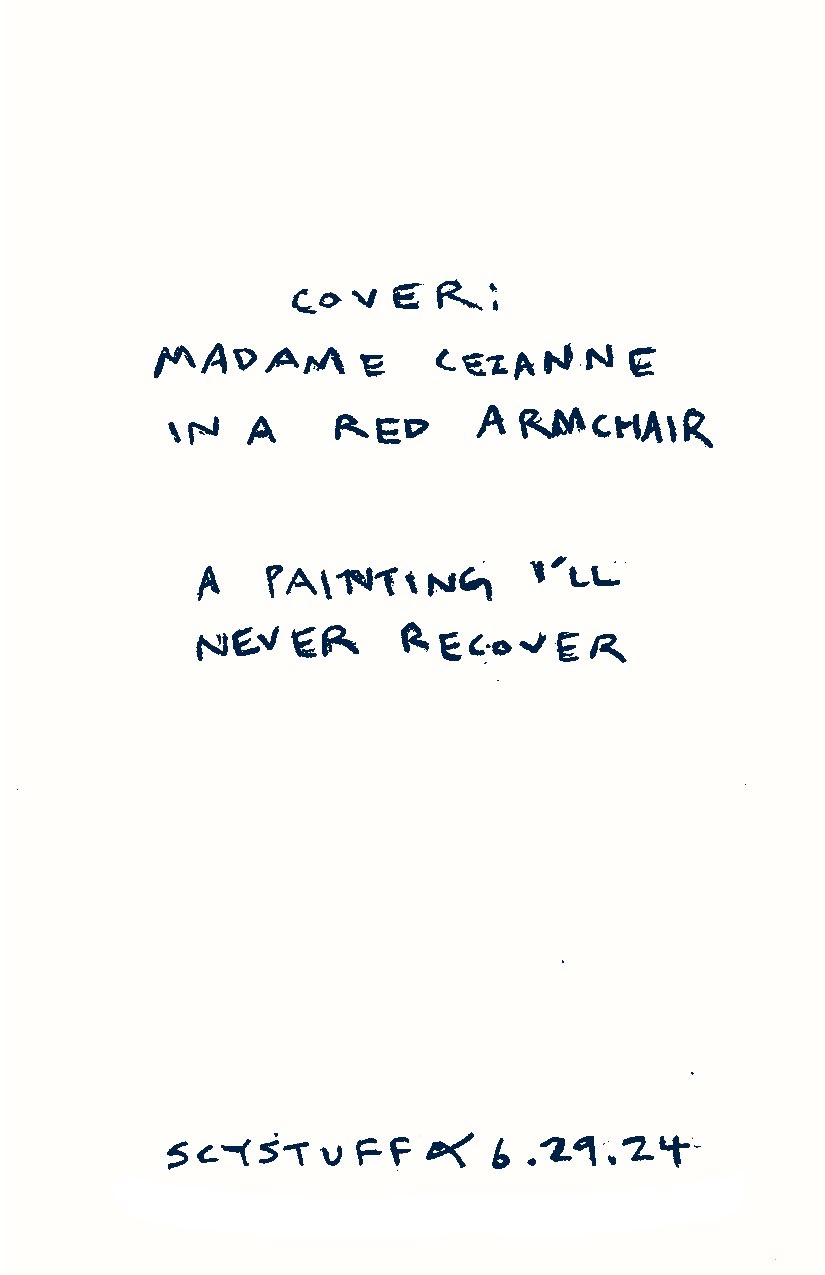 COVER:
MADAME CEZANNE
IN A RED ARMCHAIR
A PAINTING I'LL
NEVER RECOVER
SCYSTUFF 6.29.24